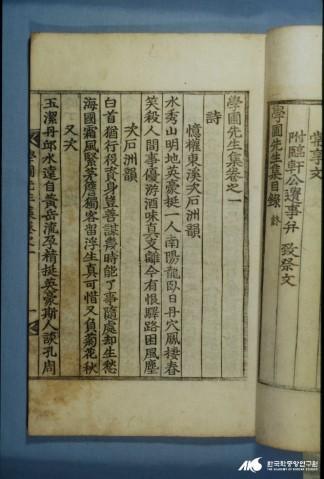 常享文
附臨軒公遺事并 致祭文
學圃先生集目錄 終
學圃先生集卷之一
詩
憶權東溪次石洲韻
水秀山明地英豪挺一人南陽龍臥日丹穴鳳棲春
笑殺人間事優游酒味真支離今有恨驛路困風塵
次石洲韻
白首猶行役資身豈善謀幾時能了事隨處却生愁
海國霜風緊茅簷獨客留浮生真可惜又負菊花秋
又次
玉潔丹邱水遠自黃岳流孕精挺英豪斯人談孔周
學圃先生集卷之一
一
한국학중앙연구원
THE ACADEMY OF KOREAN STUDIES